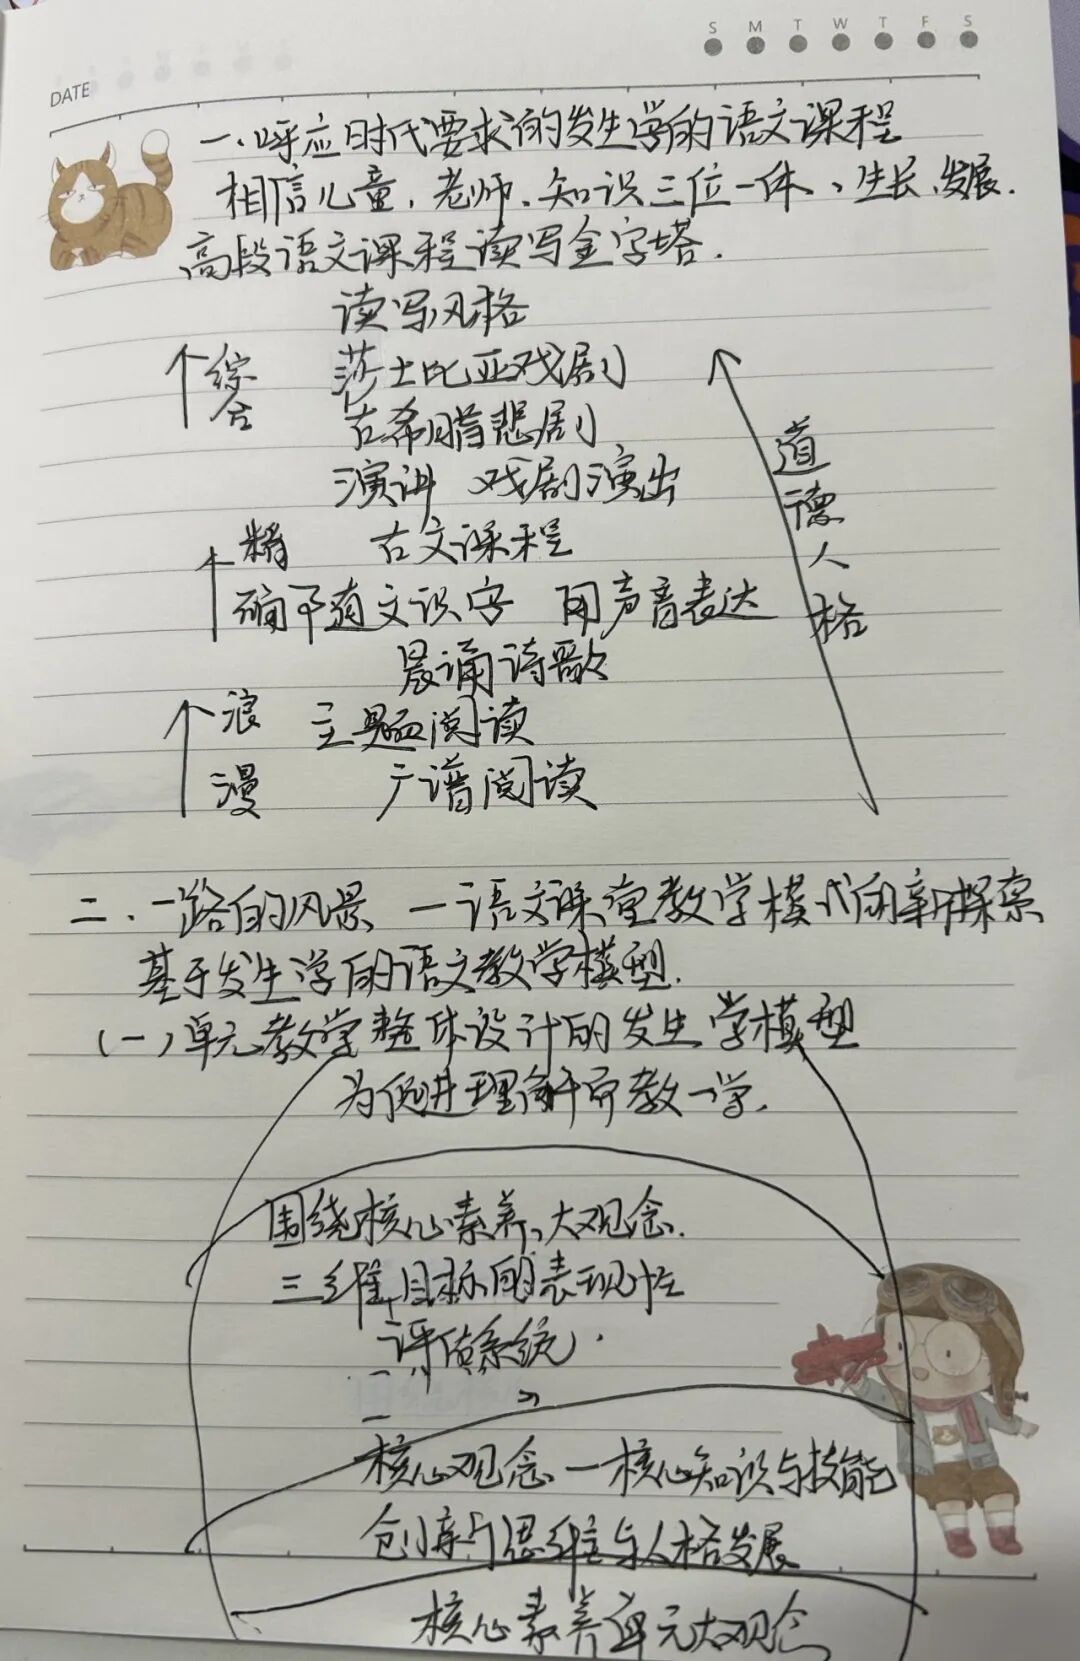 S M T W T F S
DATE
一、呼应时代要求的发生学的语文课程
相信儿童、老师、知识三位一体、生长、发展.
高段语文课程读写金字塔.
读写风格
综合 莎士比亚戏剧
古希腊悲剧
演讲 戏剧演出
道德人格
精确 古文课程
字有文识字 用声音表达
晨诵诗歌
浪漫 主题阅读
广谱阅读
二、一路的风景 一语文课堂教学模式的新探索
基于发生学的语文教学模型.
(一)单元教学整体设计的发生学模型
为促进理解而教一学.
围绕核心素养、大观念.
三维目标的表现性
评估系统.
核心观念一核心知识与技能
创享与思维与人格发展
核心素养单元大观念